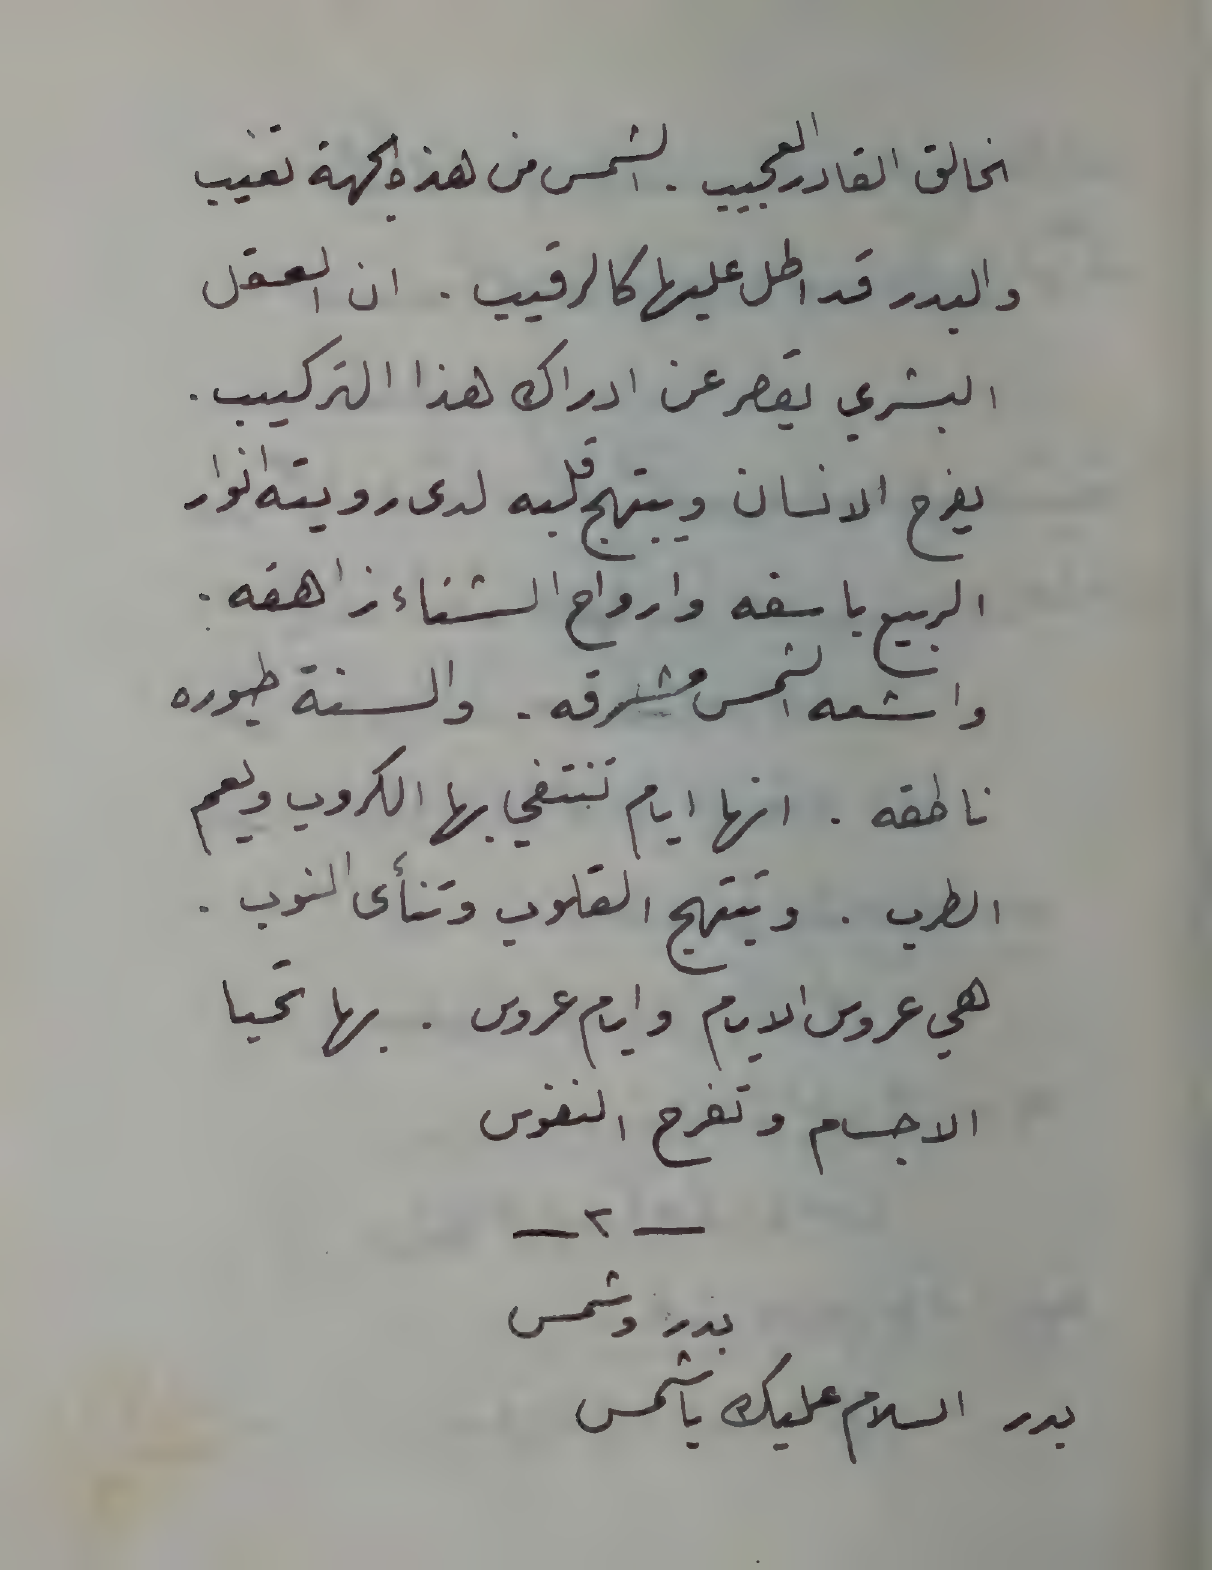 الخالق القادر العجيب . الشمس من هذه الجهة تغيب
والبدر قد اطل عليها كالرقيب . ان العقل
البشري يقصر عن ادراك هذا التركيب .
يفرح الانسان ويبتهج قلبه لدى رويته انوار
الربيع باسقه وارواح الشتاء زاهقه .
واشعه الشمس مشرقه . والسنة طيوره
ناطقه . انها ايام تنتفي بها الكروب ويعم
الطرب . وتبتهج القلوب وتنأى النوب .
هي عروس الايام وايام عروس . بها تحيا
الاجسام وتفرح النفوس
— ٢ —
بدر وشمس
بدر السلام عليك يا شمس